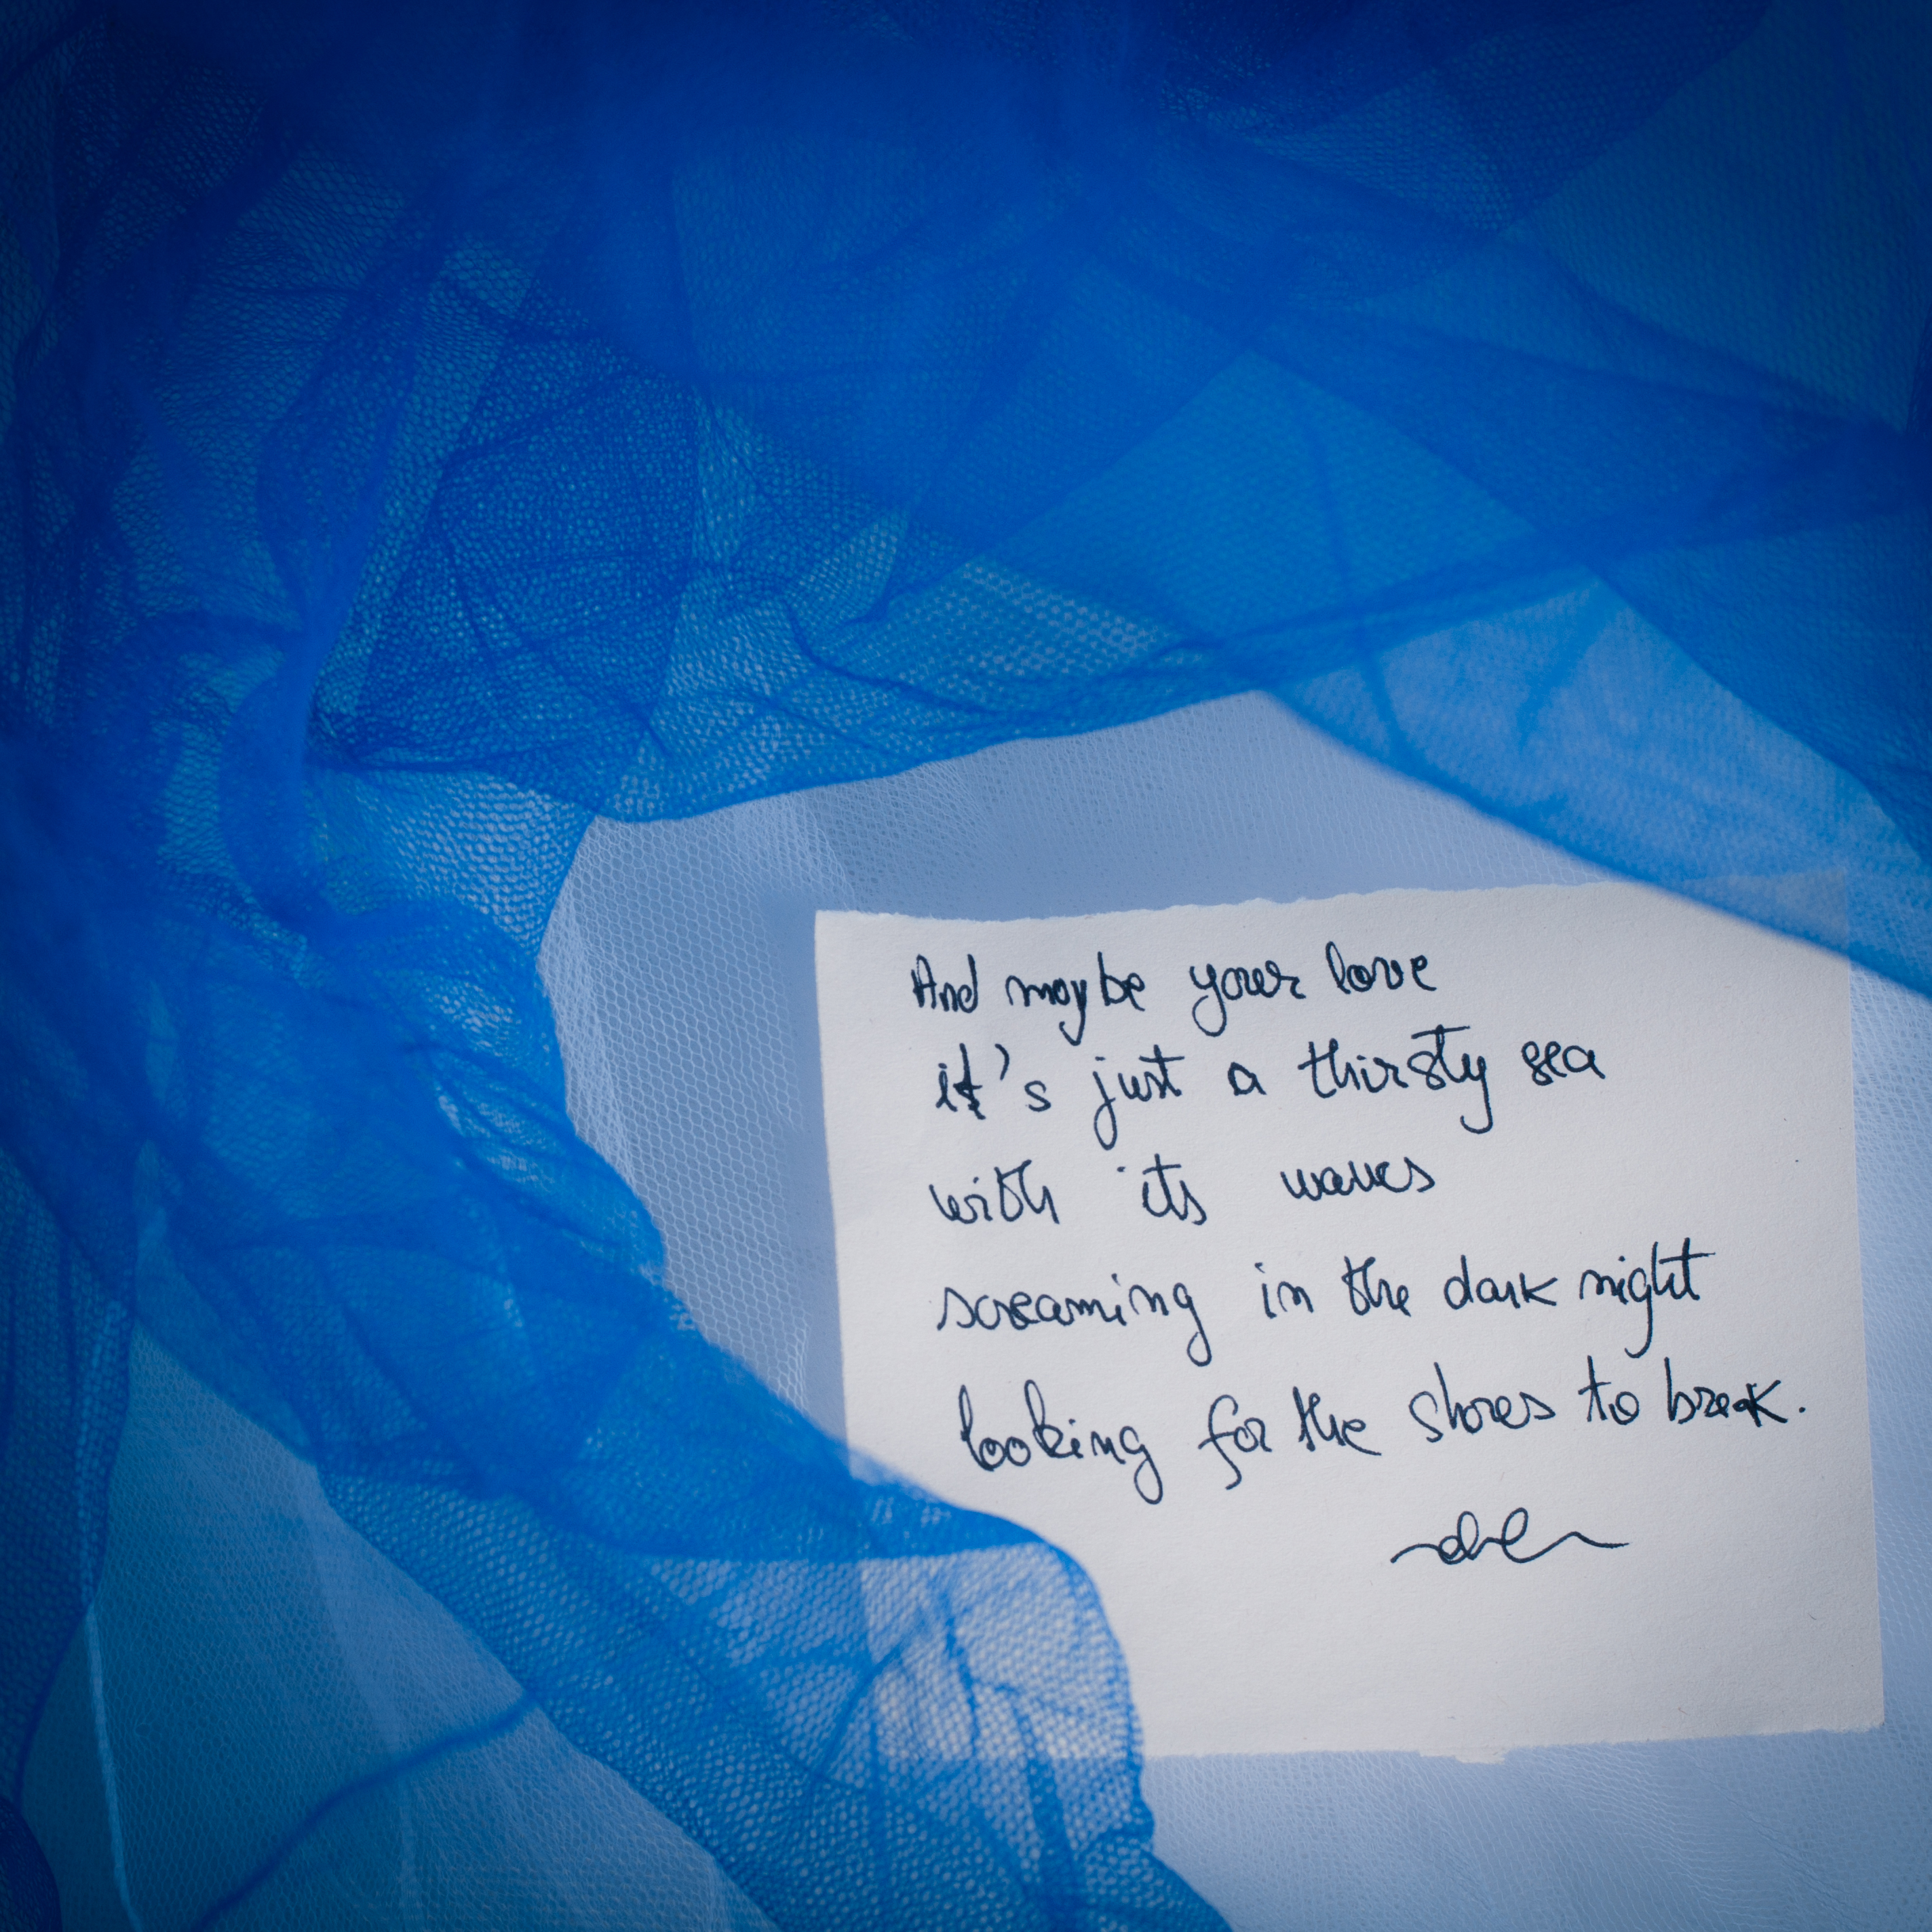 And maybe your love
it's just a thirsty sea
with its waves
screaming in the dark night
looking for the shores to break.